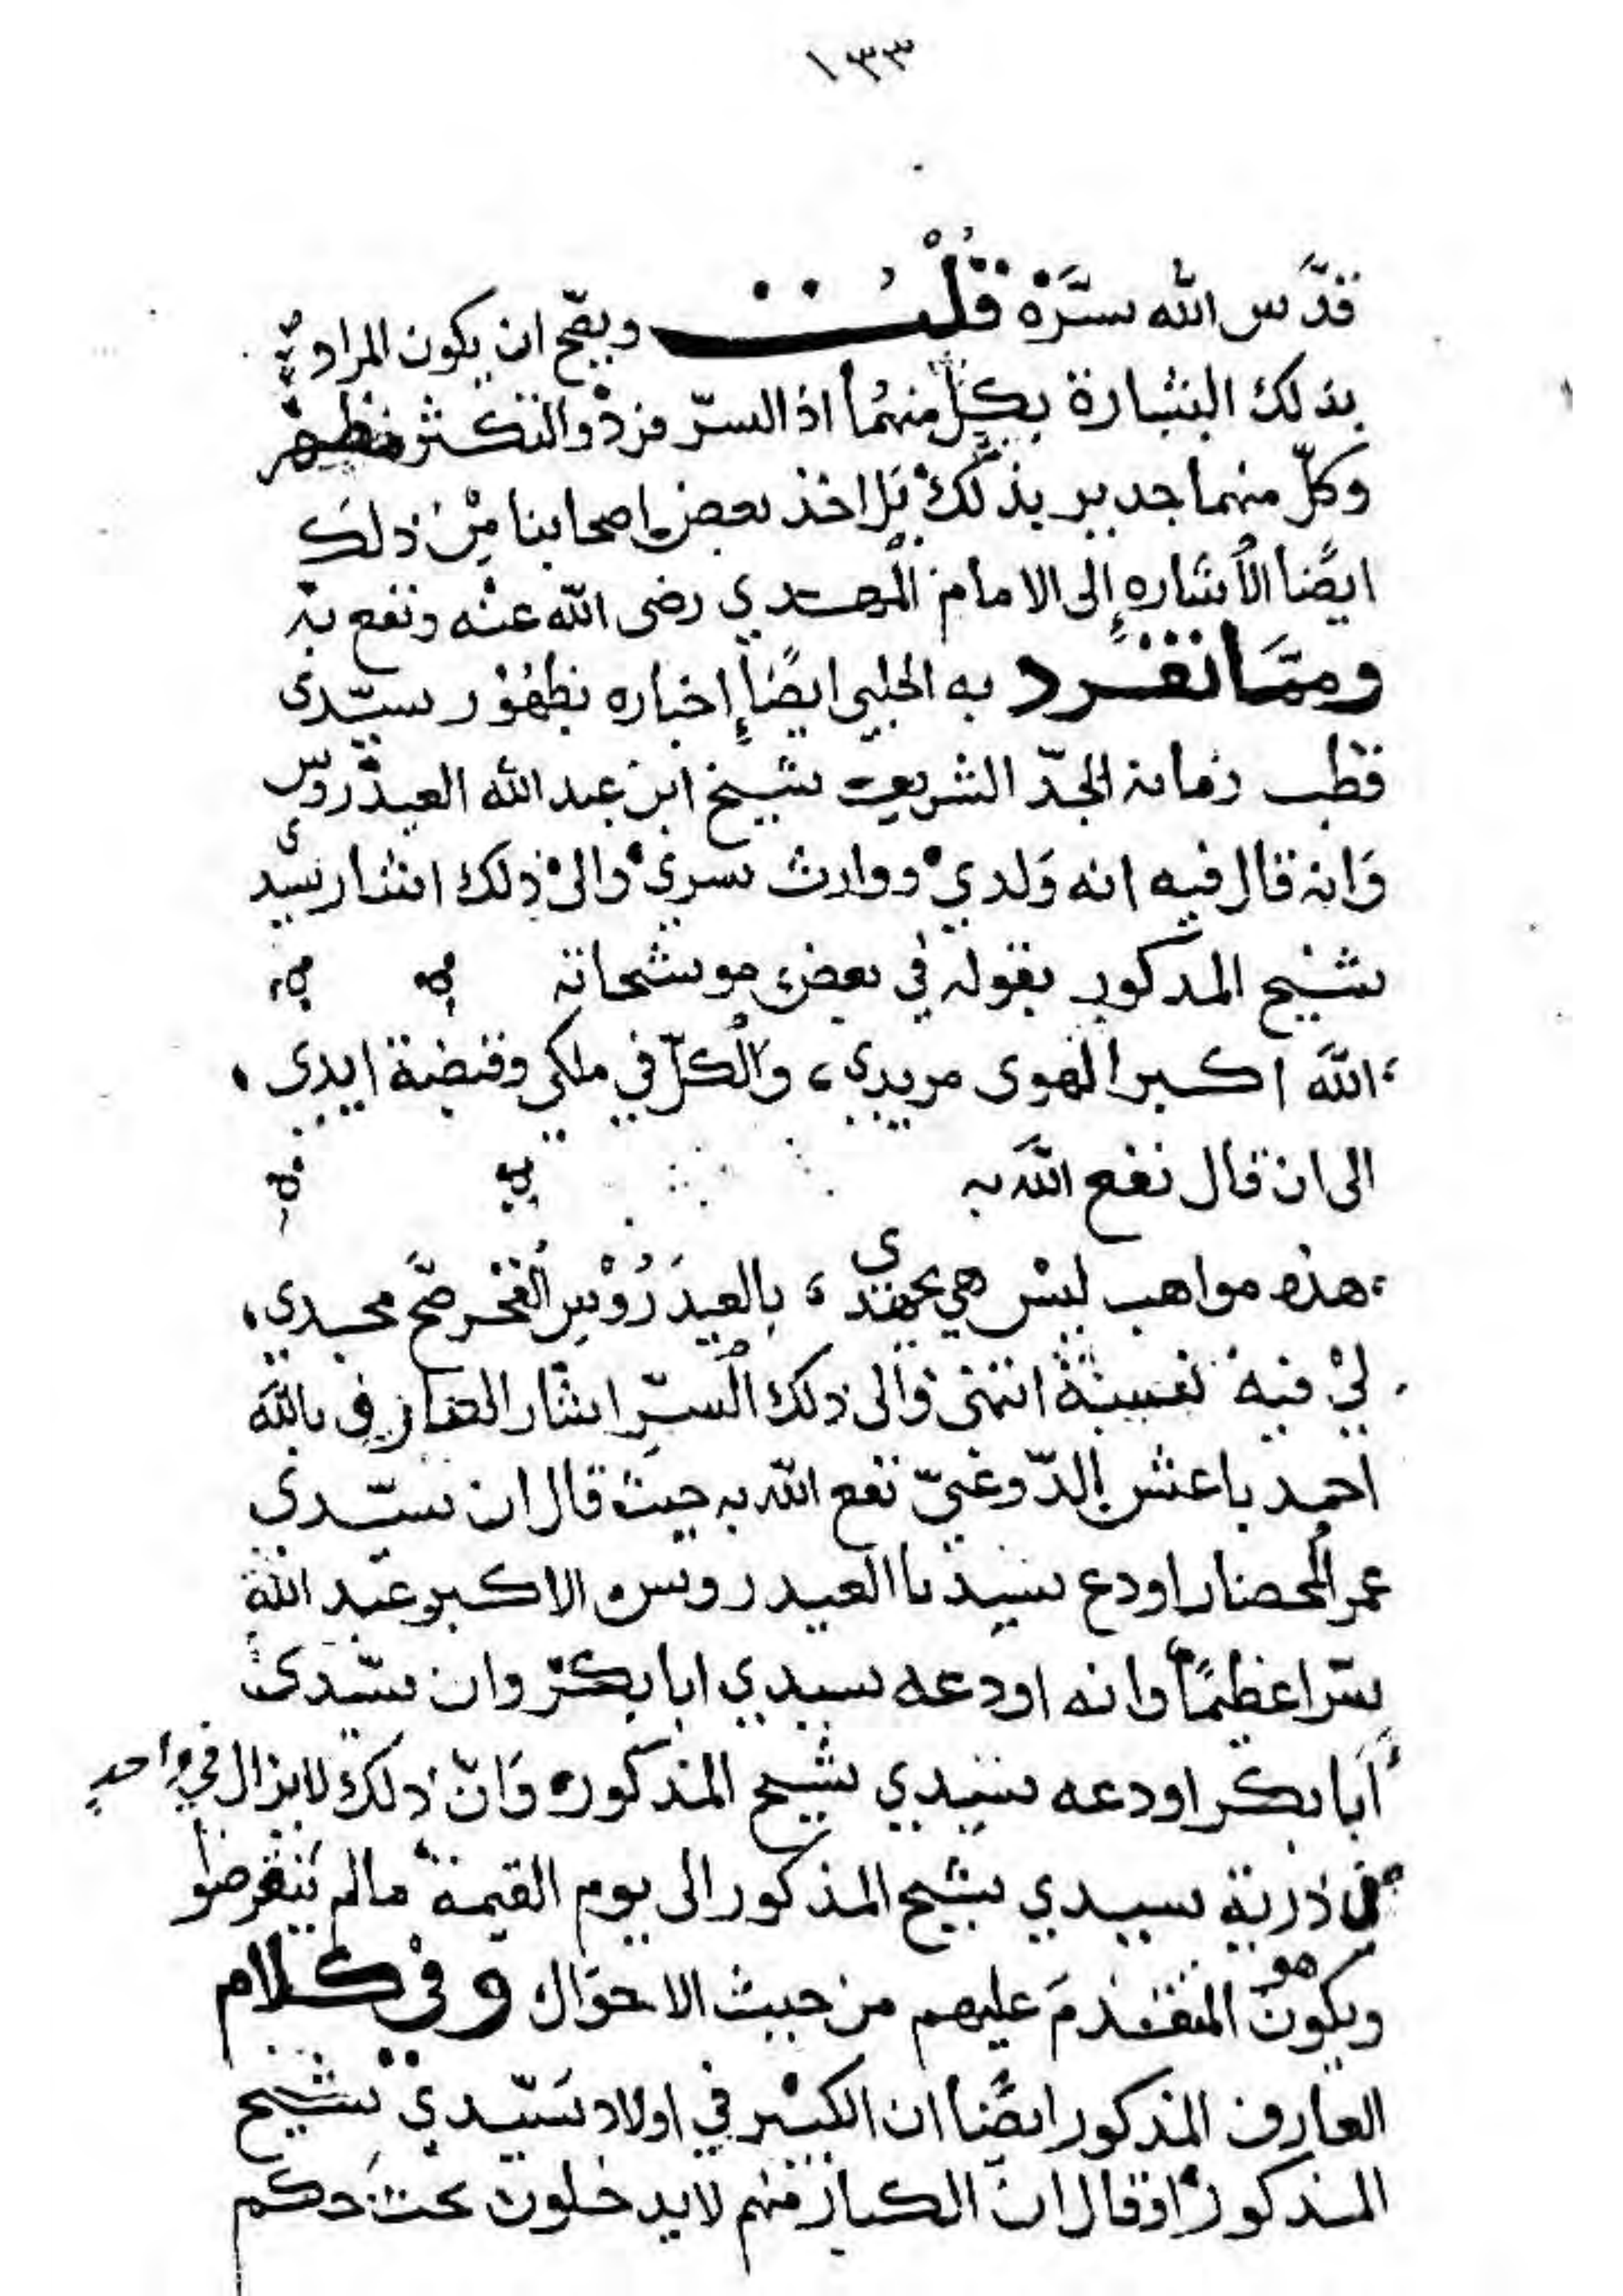 ١٣٣
قدّس الله سرّه قلت ويصح ان يكون المراد
بذلك البشارة بكلّ منهما اذ السرّ فرد والتكثر مظهر
وكلّ منهما جدير بذلك بل اخذ بعض اصحابنا من ذلك
ايضًا الأشاره إلى الامام المهدي رضى الله عنه ونفع به
وممّا انفرد به الحلبي ايضًا إخباره بظهور سيّدى
قطب زمانه الجدّ الشريف شيخ ابن عبد الله العيدروس
وانه قال فيه انه ولدي ووارث سري والى ذلك اشار سيدى
شيخ المذكور بقوله في بعض موشحاته
الله اكبر الهوى مريدي، والكلّ في ملكي وقبضة ايدى،
الى ان قال نفع الله به
هذه مواهب ليس هي بجهدي، بالعيدروس الفخر صحّ مجدي،
لي فيه نفسة انتمى والى ذلك السرّ اشار العارف بالله
احمد باعشن الدّوعنيّ نفع الله به حيث قال ان سيّدي
عمر المحضار اودع سيدنا العيدروس الاكبر عبد الله
سرّا عظيمًا وانه اودعه سيدي ابابكر وان سيّدى
أبابكر اودعه سيدي شيخ المذكور وانّ ذلك لا يزال في واحدٍ
في ذرية سيدي شيخ المذكور الى يوم القيمة مالم ينقرضوا
ويكون هو المتقدم عليهم من حيث الاحوال وفي كلام
العارف المذكور ايضًا ان الكبير في اولاد سيّدي شيخ
المذكور او قال ان الكبار منهم لا يدخلون تحت حكم